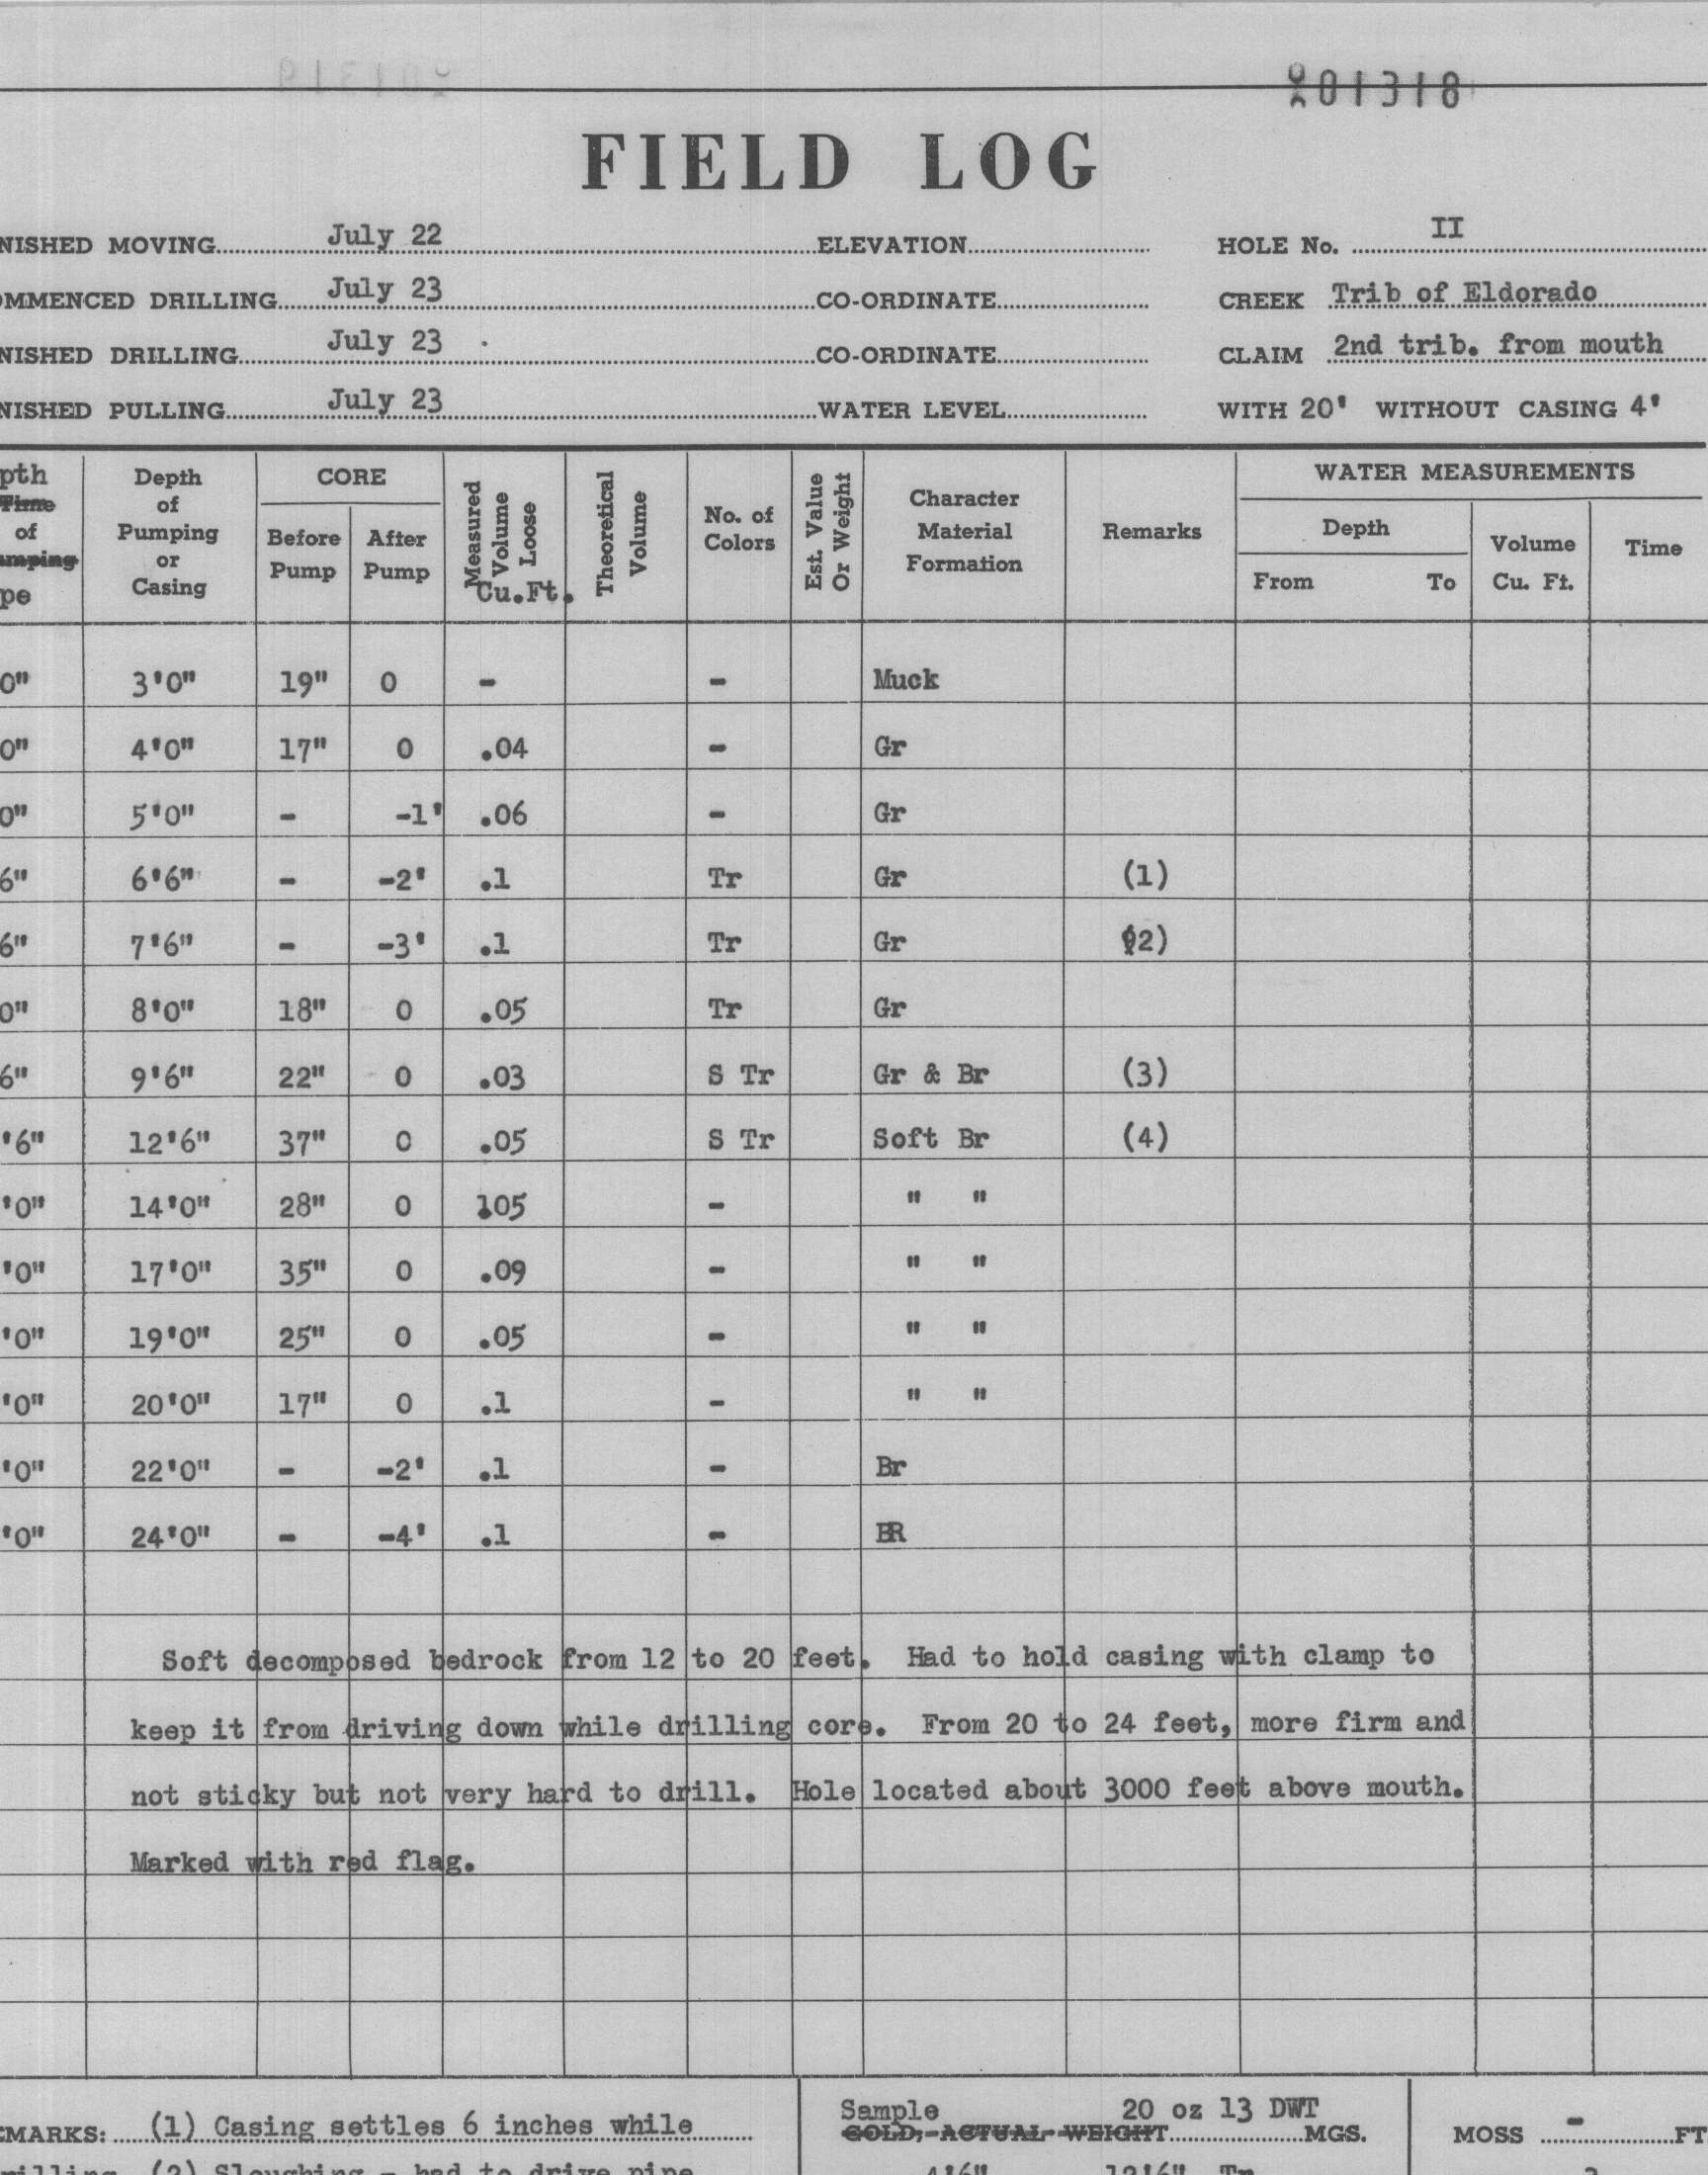 801318
FIELD LOG
NISHED MOVING July 22 ELEVATION HOLE No. II
OMMENCED DRILLING July 23 CO-ORDINATE CREEK Trib of Eldorado
NISHED DRILLING July 23 CO-ORDINATE CLAIM 2nd trib. from mouth
NISHED PULLING July 23 WATER LEVEL WITH 20' WITHOUT CASING 4'
pth Time of umping pe
Depth of Pumping or Casing
CORE
Before Pump
After Pump
Measured Volume Loose Cu.Ft.
Theoretical Volume
No. of Colors
Est. Value Or Weight
Character Material Formation
Remarks
WATER MEASUREMENTS
Depth
From To
Volume Cu. Ft.
Time
0" 3'0" 19" 0 - - Muck
0" 4'0" 17" 0 .04 - Gr
0" 5'0" - -1' .06 - Gr
6" 6'6" - -2' .1 Tr Gr (1)
6" 7'6" - -3' .1 Tr Gr (2)
0" 8'0" 18" 0 .05 Tr Gr
6" 9'6" 22" 0 .03 S Tr Gr & Br (3)
'6" 12'6" 37" 0 .05 S Tr Soft Br (4)
'0" 14'0" 28" 0 .05 - " "
'0" 17'0" 35" 0 .09 - " "
'0" 19'0" 25" 0 .05 - " "
'0" 20'0" 17" 0 .1 - " "
'0" 22'0" - -2' .1 - Br
'0" 24'0" - -4' .1 - BR
Soft decomposed bedrock from 12 to 20 feet. Had to hold casing with clamp to
keep it from driving down while drilling core. From 20 to 24 feet, more firm and
not sticky but not very hard to drill. Hole located about 3000 feet above mouth.
Marked with red flag.
EMARKS: (1) Casing settles 6 inches while
Sample 20 oz 13 DWT
GOLD, ACTUAL WEIGHT MGS. MOSS - FT
rilling (2) Sloughing - had to drive pipe
4'6" 12'6" Tr